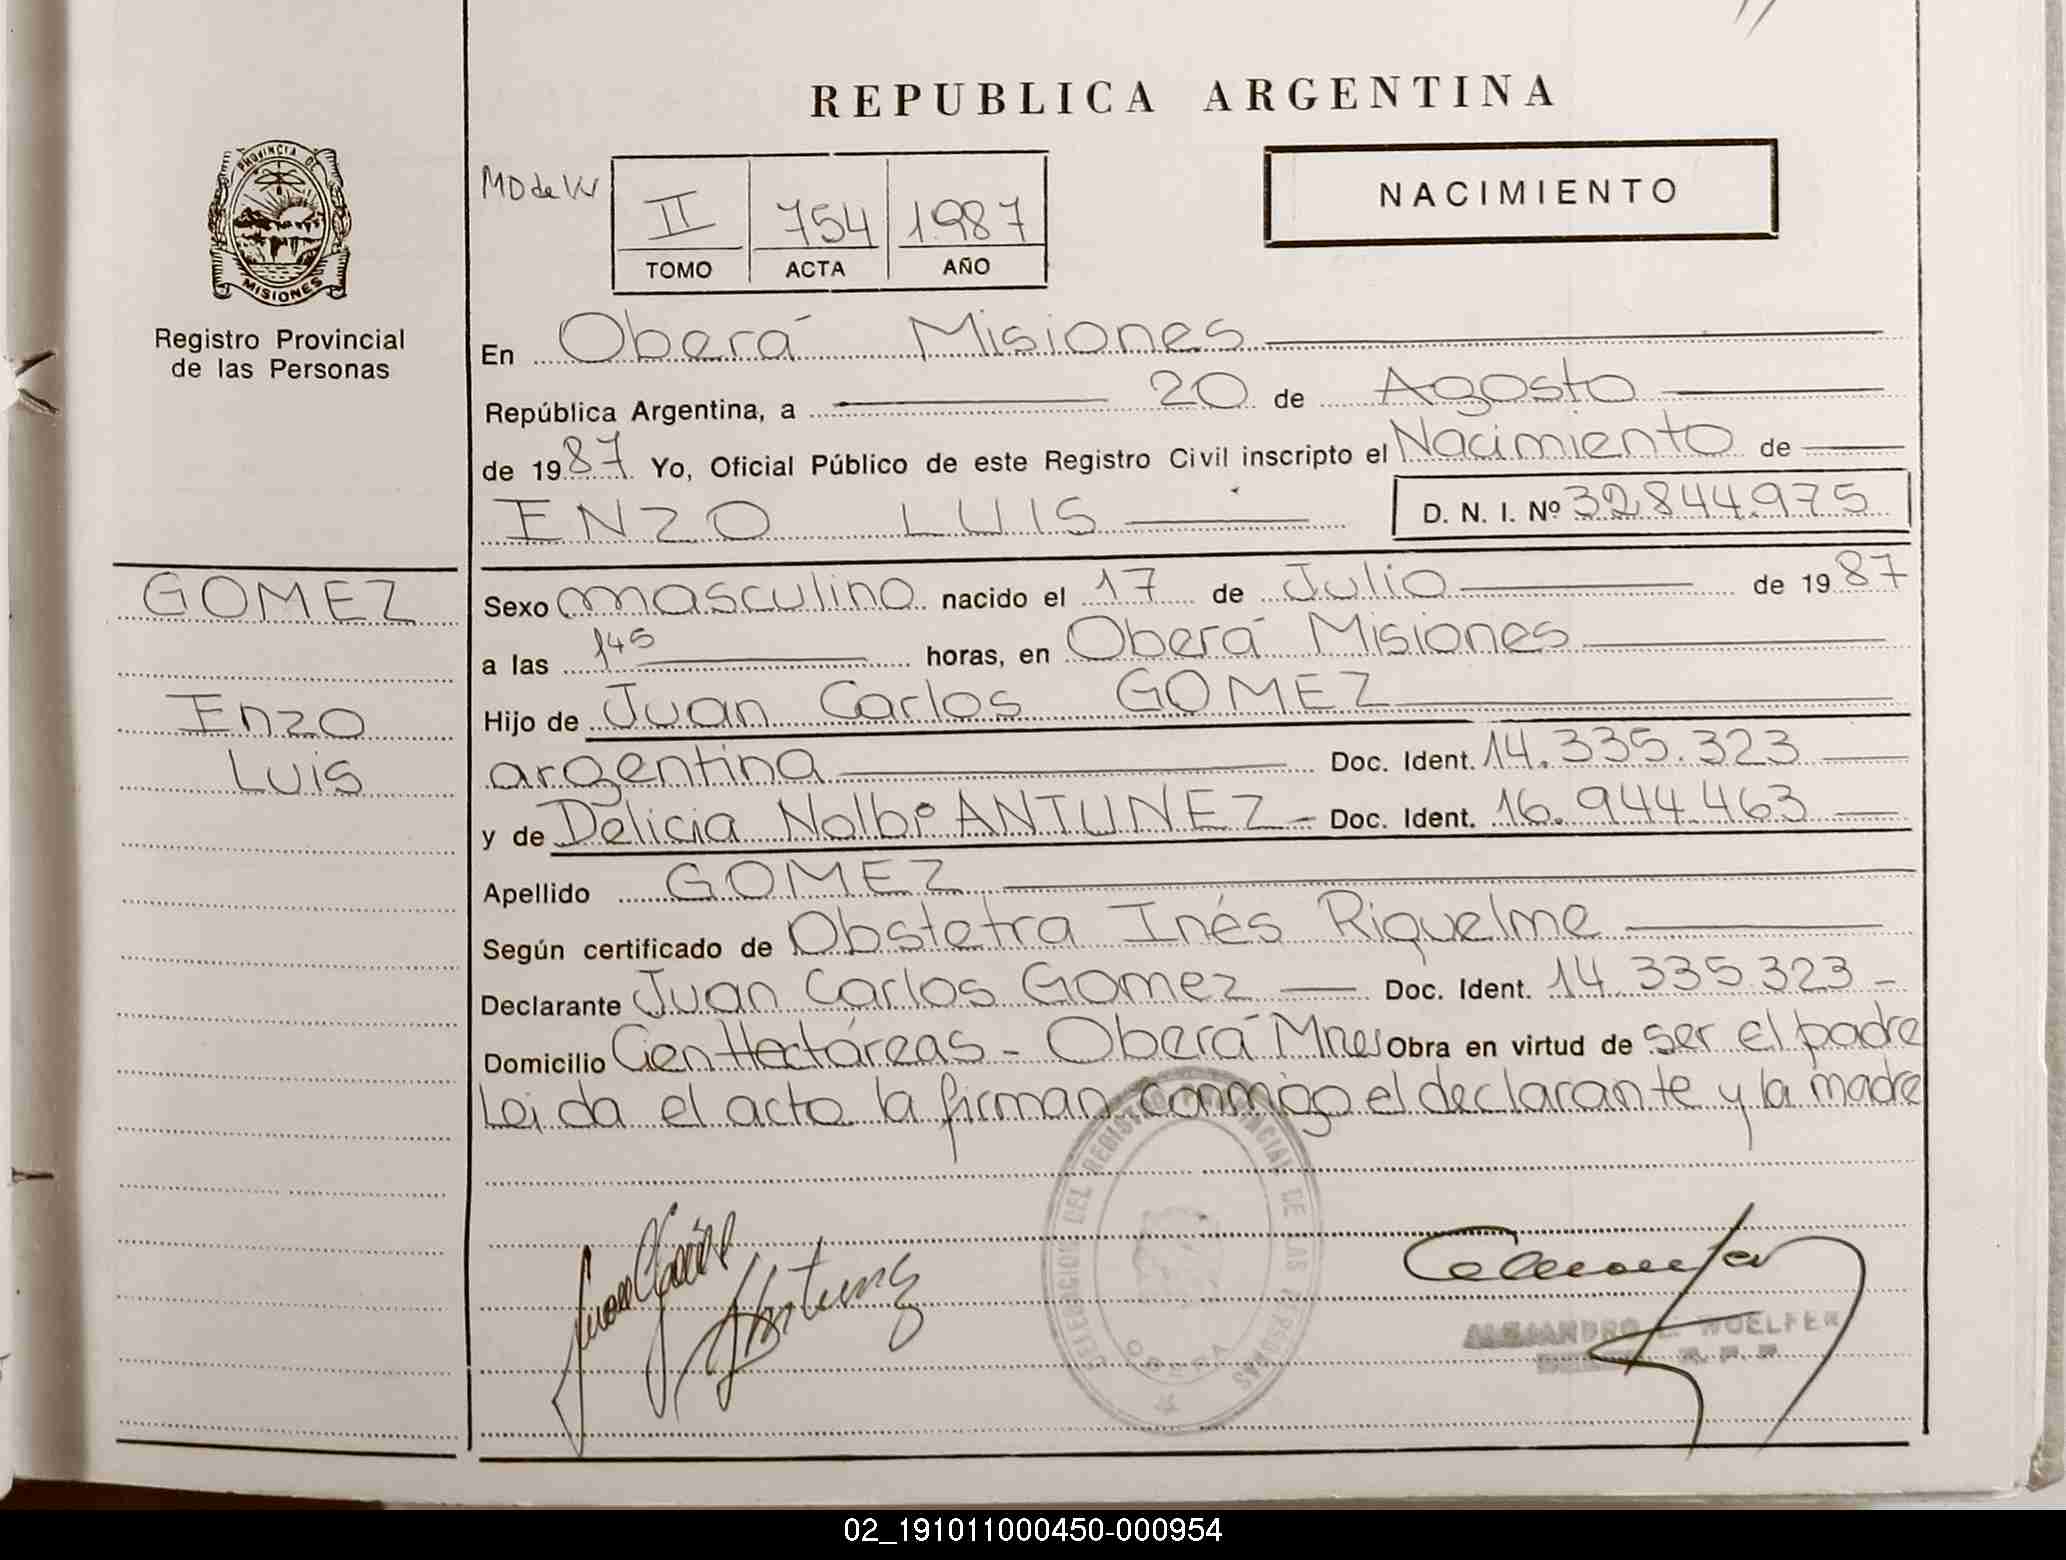 REPUBLICA ARGENTINA
PROVINCIA DE
MISIONES
Registro Provincial
de las Personas
II 754 1987
TOMO ACTA AÑO
NACIMIENTO
En Oberá Misiones
República Argentina, a 20 de Agosto
de 1987 Yo, Oficial Público de este Registro Civil inscripto el Nacimiento de
ENZO LUIS D. N. I. Nº 32.844.975
GOMEZ
Enzo
Luis
Sexo masculino nacido el 17 de Julio de 1987
a las 145 horas, en Oberá Misiones
Hijo de Juan Carlos GOMEZ
argentina Doc. Ident. 14.335.323
y de Delicia Nolbi ANTUNEZ - Doc. Ident. 16.944.463
Apellido GOMEZ
Según certificado de Obstetra Inés Riquelme
Declarante Juan Carlos Gomez Doc. Ident. 14.335.323 -
Domicilio Cien Hectáreas - Oberá Mnes Obra en virtud de ser el padre
Leida el acta la firman conmigo el declarante y la madre
DELEGACION DEL REGISTRO PROVINCIAL DE LAS PERSONAS
OBERA
Antunez
ALEJANDRO L. WOELFER
R. P. P.
02_191011000450-000954